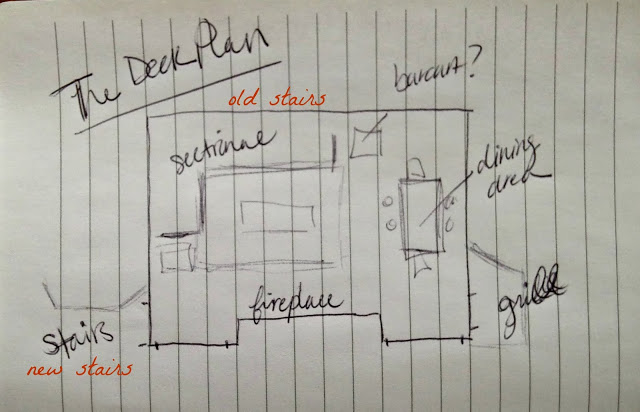 The Deck Plan
barcart?
old stairs
sectional
dining
area
fireplace
grill
stairs
new stairs